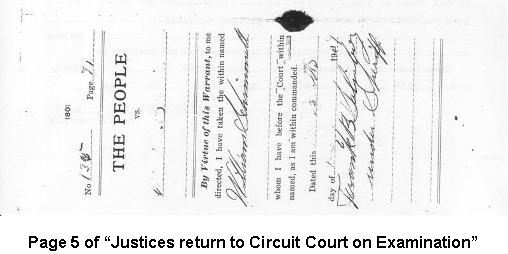 (80)
No 1395 Page 71
THE PEOPLE
vs.
By Virtue of this Warrant, to me
directed, I have taken the within named
William
whom I have before the "Court" within
named, as I am within commanded.
Dated this
day of 190
Frank
under Sheriff
Page 5 of “Justices return to Circuit Court on Examination”